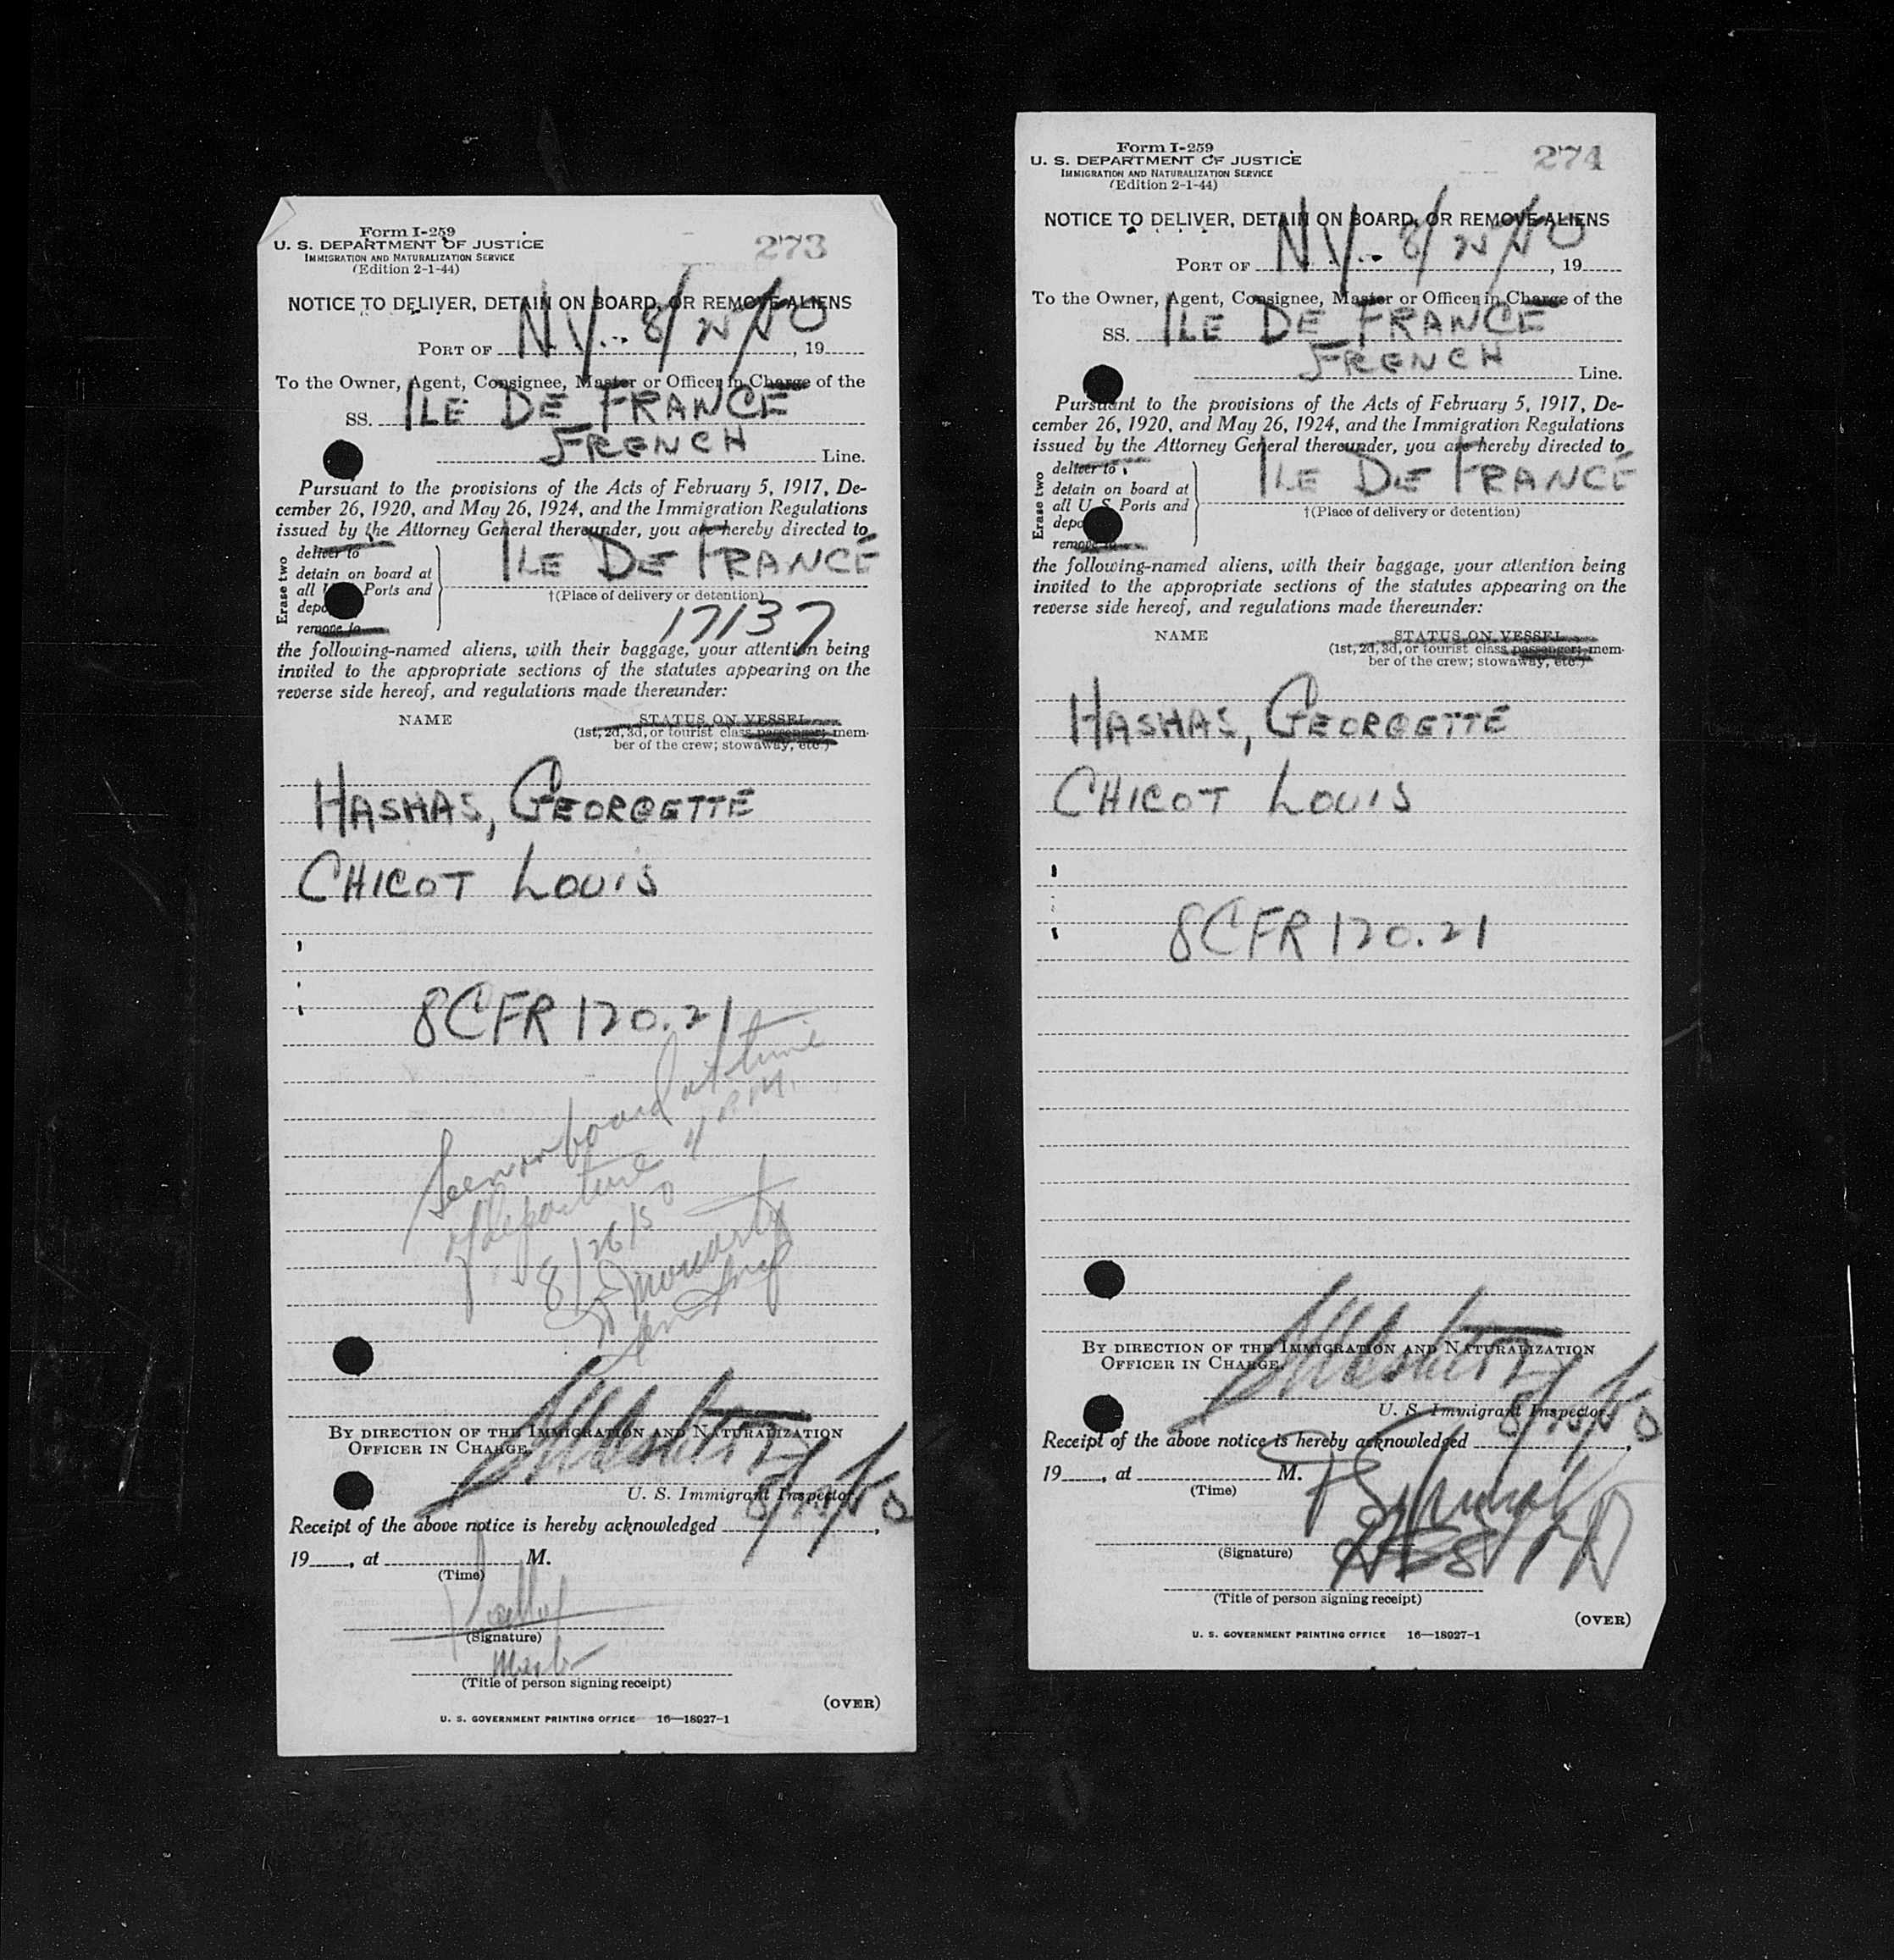 Form I-259
U. S. DEPARTMENT OF JUSTICE
IMMIGRATION AND NATURALIZATION SERVICE
(Edition 2-1-44)
273
NOTICE TO DELIVER, DETAIN ON BOARD, OR REMOVE ALIENS
PORT OF N.Y. 8/25/50, 19
To the Owner, Agent, Consignee, Master or Officer in Charge of the
SS. ILE DE FRANCE
FRENCH Line.
Pursuant to the provisions of the Acts of February 5, 1917, De-
cember 26, 1920, and May 26, 1924, and the Immigration Regulations
issued by the Attorney General thereunder, you are hereby directed to
Erase two
deliver to
detain on board at
all Ports and
remove to
ILE DE FRANCE
†(Place of delivery or detention)
17137
the following-named aliens, with their baggage, your attention being
invited to the appropriate sections of the statutes appearing on the
reverse side hereof, and regulations made thereunder:
NAME STATUS ON VESSEL
(1st, 2d, 3d, or tourist class passenger; mem-
ber of the crew; stowaway, etc.)
HASHAS, GEORGETTE
CHICOT LOUIS
8CFR 120.21
Seen on board at time
of departure 4 P.M.
8/26/50
BY DIRECTION OF THE IMMIGRATION AND NATURALIZATION
OFFICER IN CHARGE.
U. S. Immigrant Inspector
Receipt of the above notice is hereby acknowledged
19, at M.
(Time)
(Signature)
(Title of person signing receipt)
(OVER)
U. S. GOVERNMENT PRINTING OFFICE 16—18927-1
Form I-259
U. S. DEPARTMENT OF JUSTICE
IMMIGRATION AND NATURALIZATION SERVICE
(Edition 2-1-44)
274
NOTICE TO DELIVER, DETAIN ON BOARD, OR REMOVE ALIENS
PORT OF N.Y. 8/25/50, 19
To the Owner, Agent, Consignee, Master or Officer in Charge of the
SS. ILE DE FRANCE
FRENCH Line.
Pursuant to the provisions of the Acts of February 5, 1917, De-
cember 26, 1920, and May 26, 1924, and the Immigration Regulations
issued by the Attorney General thereunder, you are hereby directed to
Erase two
deliver to
detain on board at
all U. S. Ports and
remove to
ILE DE FRANCE
†(Place of delivery or detention)
the following-named aliens, with their baggage, your attention being
invited to the appropriate sections of the statutes appearing on the
reverse side hereof, and regulations made thereunder:
NAME STATUS ON VESSEL
(1st, 2d, 3d, or tourist class passenger; mem-
ber of the crew; stowaway, etc.)
HASHAS, GEORGETTE
CHICOT LOUIS
8CFR 120.21
BY DIRECTION OF THE IMMIGRATION AND NATURALIZATION
OFFICER IN CHARGE.
U. S. Immigrant Inspector
Receipt of the above notice is hereby acknowledged
19, at M.
(Time)
(Signature)
(Title of person signing receipt)
(OVER)
U. S. GOVERNMENT PRINTING OFFICE 16—18927-1